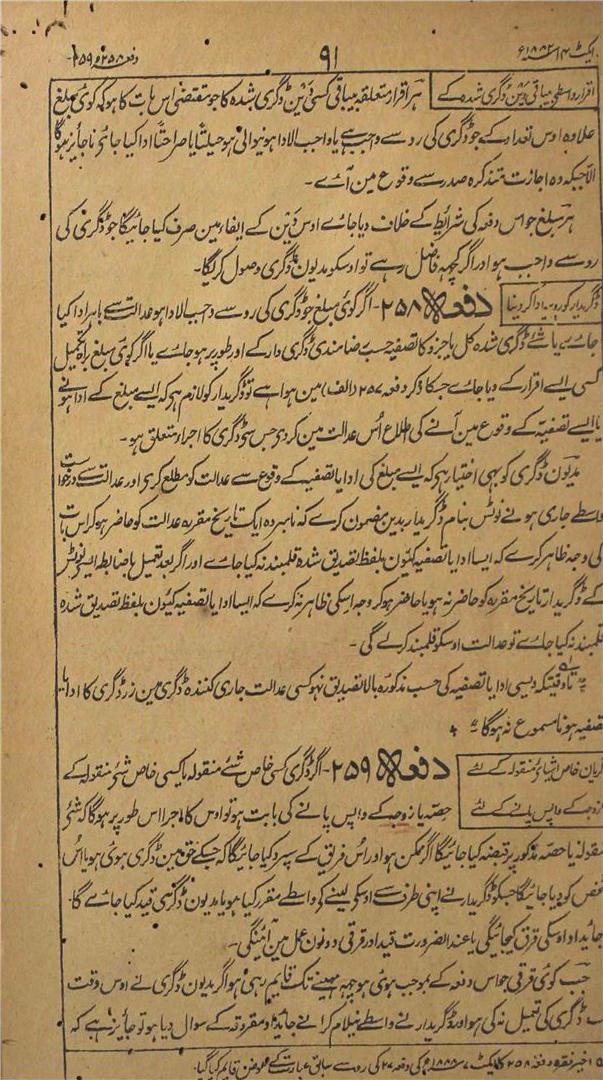 ایکٹ ۱۴ سنہ ۱۸۸۲ء
۹۱
دفعہ ۲۵۸ و ۲۵۹
اقرار واسطے بیباقی دین ڈگری شدہ کے
ہر اقرار متعلقہ بیباقی کسی دین ڈگری شدہ کا جو مقتضی اس بات کا ہو کہ کوئی مبلغ
علاوہ اوس تعداد کے جو ڈگری کی رو سے واجب ہے یا واجب الادا ہونیوالی ہو حیلتاً یا صراحتاً ادا کیا جائے ناجایز ہوگا
الا جبکہ وہ اجازت متذکرہ صدر سے وقوع مین آئے۔
ہر مبلغ جو اس دفعہ کی شرایط کے خلاف دیا جاے اوس دین کے ایفاء مین صرف کیا جائیگا جو ڈگری کی
رو سے واجب ہو اور اگر کچھہ فاضل رہے تو اوسکو مدیون ڈگری وصول کریگا۔
ڈگریدار کو روپیہ ادا کر دینا
دفعہ ۲۵۸۔ اگر کوئی مبلغ جو ڈگری کی رو سے واجب الادا ہو عدالت سے باہر ادا کیا
جاے یا شے ڈگری شدہ کل یا جزو کا تصفیہ حسب رضامندی ڈگری دار کے اور طور پر ہو جاے یا اگر کوئی مبلغ براہ تکمیل
کسی ایسے اقرار کے دیا جاے جسکا ذکر دفعہ ۲۵۷ (الف) مین ہوا ہے تو ڈگریدار کو لازم ہے کہ ایسے مبلغ کے ادا ہونے
یا ایسے تصفیہ کے وقوع مین آنے کی اطلاع اُس عدالت مین کر دے جس سے ڈگری کا اجرا متعلق ہو۔
مدیون ڈگری کو بھی اختیار ہے کہ ایسے مبلغ کی ادا یا تصفیہ کے وقوع سے عدالت کو مطلع کرے اور عدالت سے درخواست
واسطے جاری ہونے نوٹس بنام ڈگریدار بدین مضمون کرے کہ نامبردہ ایک تاریخ مقررہ عدالت کو حاضر ہو کر اس بات
کی وجہ ظاہر کرے کہ ایسا ادا یا تصفیہ کیون بلفظ تصدیق شدہ قلمبند نہ کیا جاے اور اگر بعد تعمیل باضابطہ ایسے نوٹس
کے ڈگریدار تاریخ مقررہ کو حاضر نہ ہو یا حاضر ہو کر وجہ اسکی ظاہر نہ کرے کہ ایسا ادا یا تصفیہ کیون بلفظ تصدیق شدہ
قلمبند نہ کیا جاے تو عدالت اوسکو قلمبند کرلے گی۔
تاوقتیکہ ایسی ادا یا تصفیہ کی حسب مذکورہ بالا تصدیق نہو کسی عدالت جاری کنندہ ڈگری مین زر ڈگری کا ادا یا
تصفیہ ہونا مسموع نہ ہوگا
ڈگریان خاص اشیاے منقولہ کے لئے
زوجہ کے واپس پانے کے لئے
دفعہ ۲۵۹۔ اگر ڈگری کسی خاص شئے منقولہ یا کیسی خاص شئے منقولہ کے
حصہ یا زوجہ کے واپس پانے کی بابت ہو تو اوس کا اجرا اس طور پر ہوگا کہ شئے
منقولہ یا حصہ مذکور پر قبضہ کیا جائیگا اگر ممکن ہو اور اُس فریق کے سپرد کیا جائیگا کہ جسکے حق مین ڈگری ہوئی ہو یا اُس
شخص کو دیا جائیگا جسکو ڈگریدار نے اپنی طرف سے اوسکو لینے کی واسطے مقرر کیا ہو یا مدیون ڈگری قید کیا جاے گا۔
جائداد اوسکی قرق کیجائیگی یا عند الضرورت قید اور قرقی دونون عمل مین آئینگی۔
جب کوئی قرقی جو اس دفعہ کے بموجب ہوئی ہو چھہ مہینے تک قایم رہی ہو اگر مدیون ڈگری نے اوس وقت
ڈگری کی تعمیل نہ کی ہو اور ڈگریدار نے واسطے نیلام کرانے جائداد مقروقہ کے سوال دیا ہو تو جایز ہے کہ
اخیر فقرہ دفعہ ۲۵۸ کا ایکٹ ۷ ۱۸۸۸ء کی دفعہ ۲۷ کی رو سے سابق عبارت کے عوض قایم کیا گیا۔